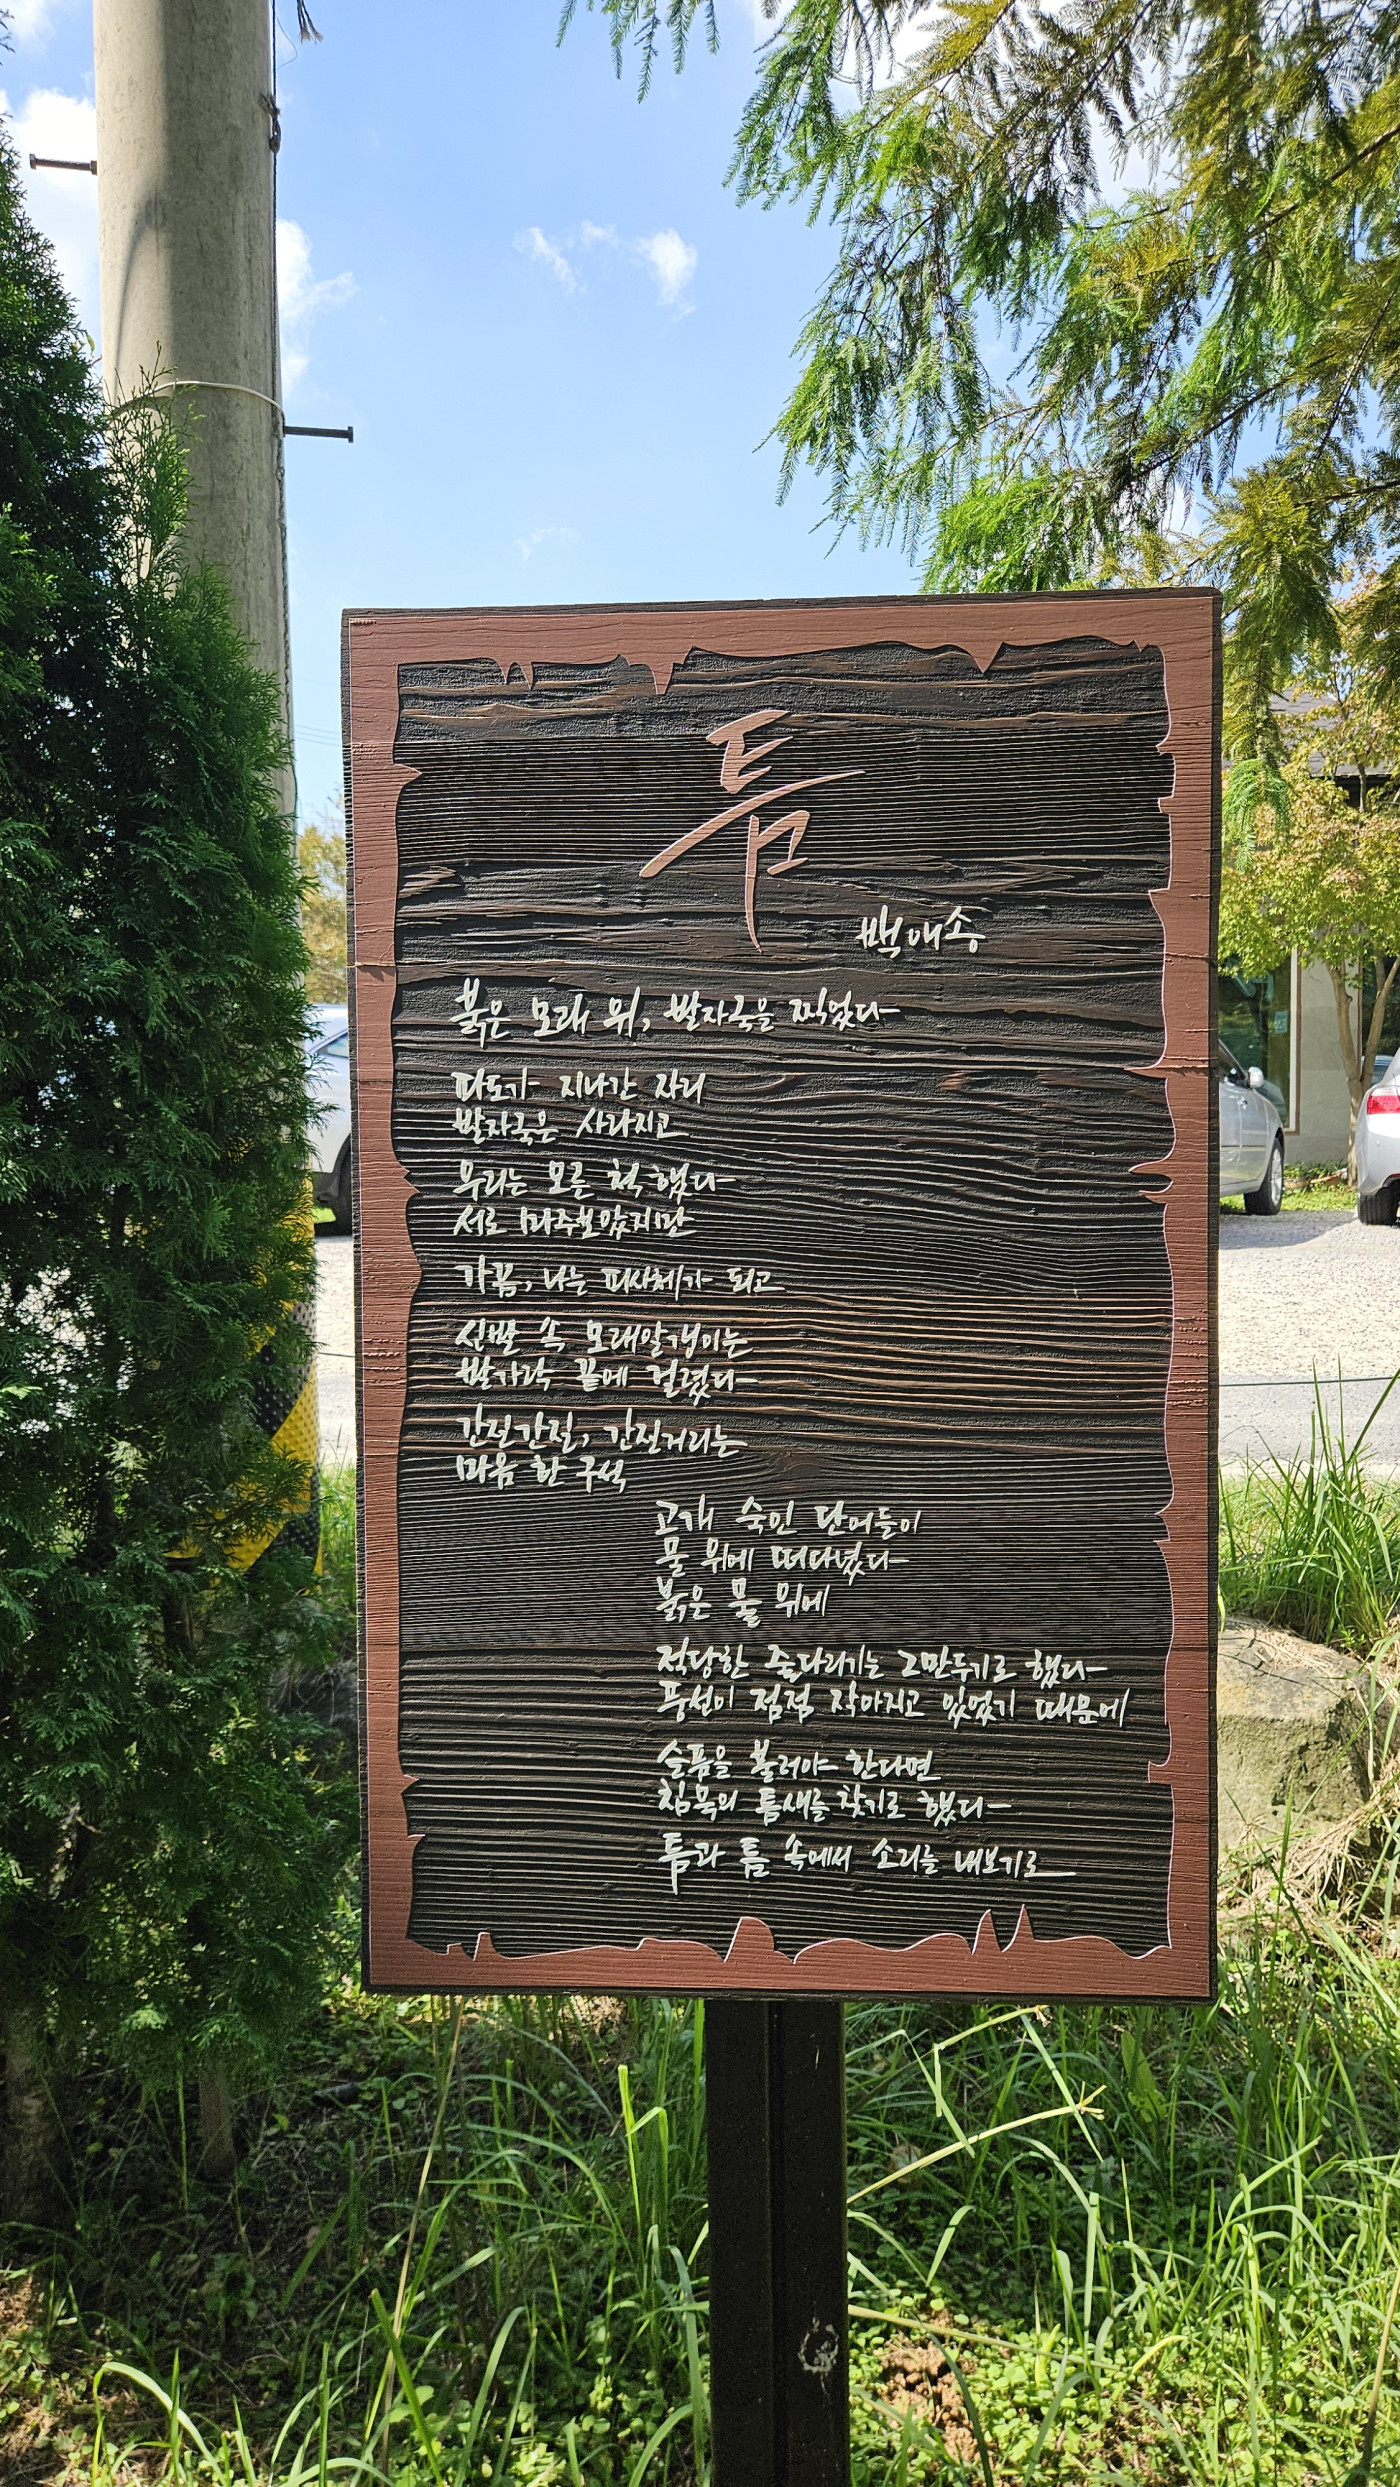 틈
백애송
붉은 모래 위, 발자국을 찍었다
파도가 지나간 자리
발자국은 사라지고
우리는 모른 척 했다
서로 마주보았지만
가끔, 나는 피사체가 되고
신발 속 모래알갱이는
발가락 끝에 걸렸다
간질간질, 간질거리는
마음 한 구석
고개 숙인 단어들이
물 위에 떠다녔다
붉은 물 위에
적당한 줄다리기는 그만두기로 했다
풍선이 점점 작아지고 있었기 때문에
슬픔을 불러야 한다면
침묵의 틈새를 찾기로 했다
틈과 틈 속에서 소리를 내보기로